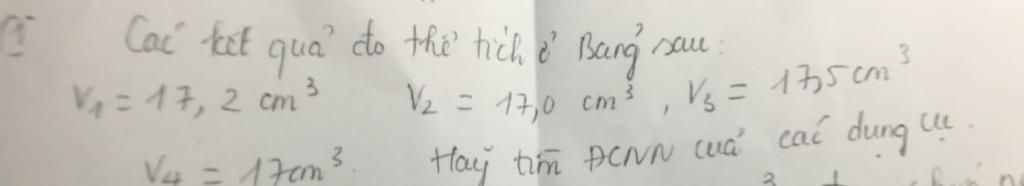 Các kết quả đo thể tích ở Bảng sau:
V₁ = 17,2 cm³ V₂ = 17,0 cm³, V₃ = 17,5 cm³
V₄ = 17cm³. Haỹ tìm ĐCNN cuả các dụng cụ.